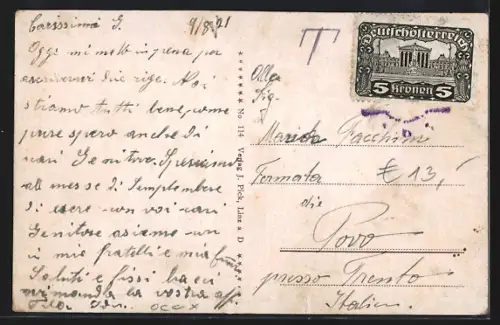 Carissima G. 9/8 21
Oggi mi metto in pena per
scrivervi due rige. Noi
stiamo tutti bene, come
pure spero anche di
cari Genitore. Speriamo
al messe di Semptembere
di esere con voi cari
Genitore asieme con
i mie fratelli e mia
Saluti e bacci
vi manda la vostra aff
No. 114 Verlag J. Pick, Linz a D
T
Deutschösterreich
5 Kronen 5
Alla
Sig.
Facchini
Fermata € 13,-
die
Povo
presso Trento
Italien.